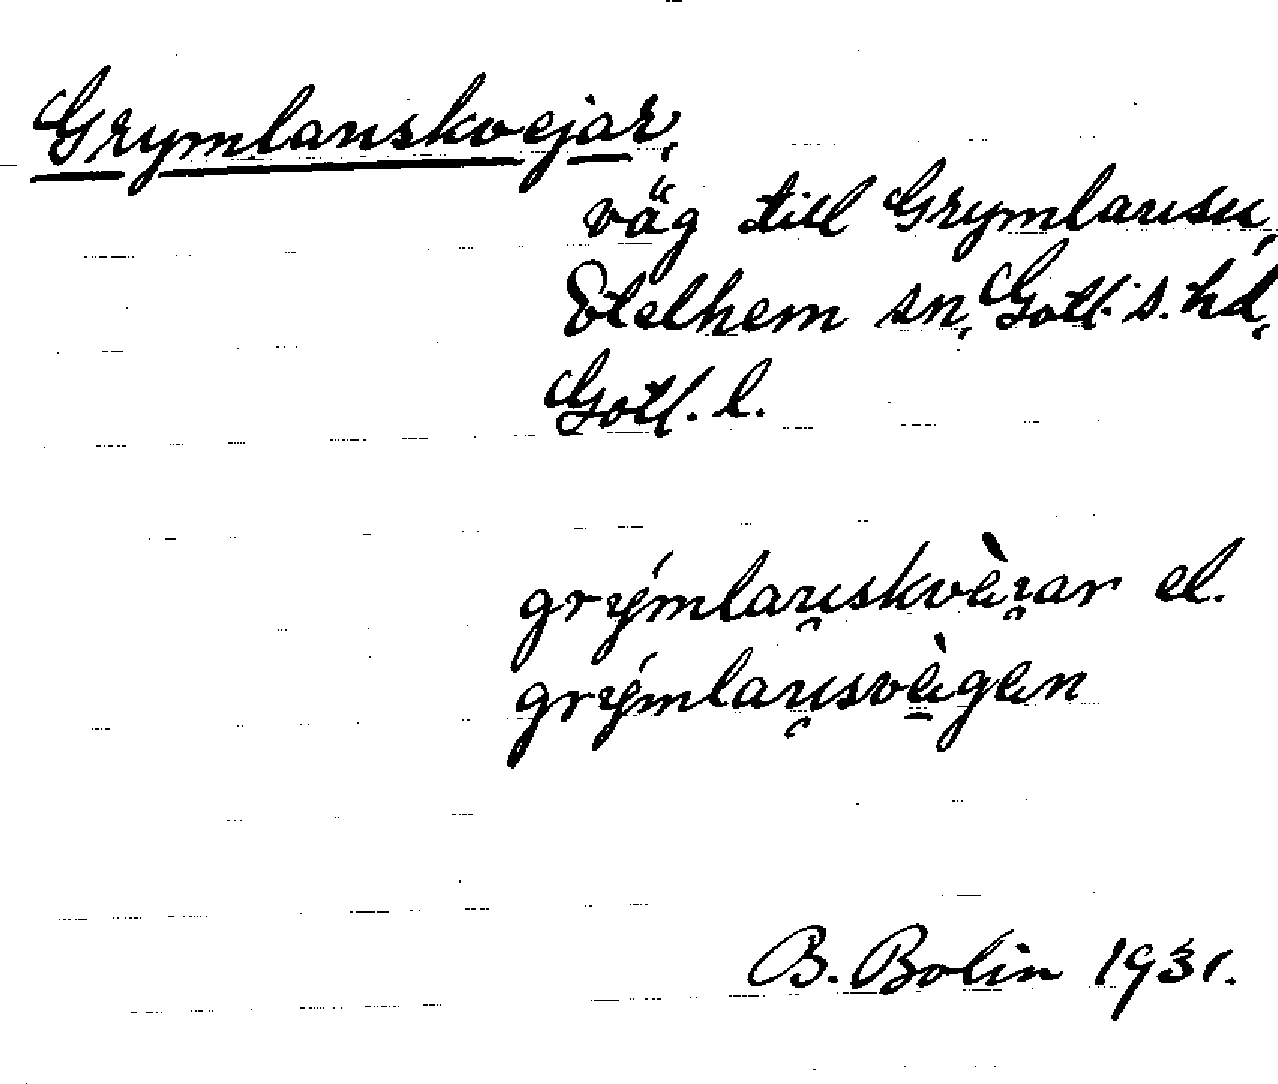 Grymlauskvejar,
väg till Grymlausu,
Etelhem sn, Gotl. s. hd,
Gotl. l.
grýmlau̯skvὲi̯ar el.
grýmlau̯svὲgεn
B. Bolin 1931.